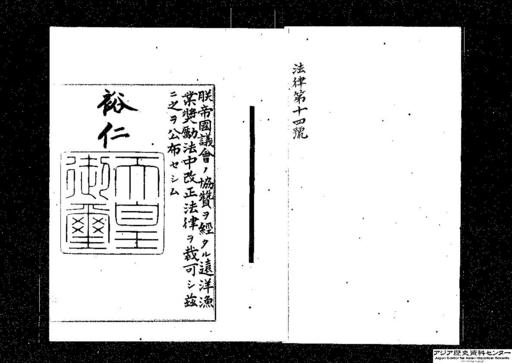 法律第十四號
朕帝國議會ノ協贊ヲ經タル遠洋漁
業奬勵法中改正法律ヲ裁可シ茲
ニ之ヲ公布セシム
裕仁
天皇
御璽
アジア歴史資料センター
Japan Center for Asian Historical Records